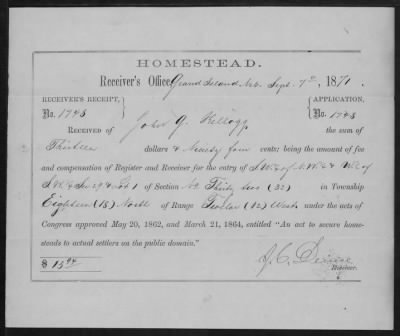 HOMESTEAD.
Receiver's Office, Grand Island, Neb. Sept. 7th, 1871.
RECEIVER'S RECEIPT, APPLICATION,
No. 1745 No. 1745
RECEIVED OF John G. Kellogg the sum of
Thirteen dollars & Ninety four cents; being the amount of fee
and compensation of Register and Receiver for the entry of
of Section No Thirty two (32) in Township
Eighteen (18) North of Range Twelve (12) West under the acts of
Congress approved May 20, 1862, and March 21, 1864, entitled "An act to secure home-
steads to actual settlers on the public domain."
$ 13 94
Receiver.